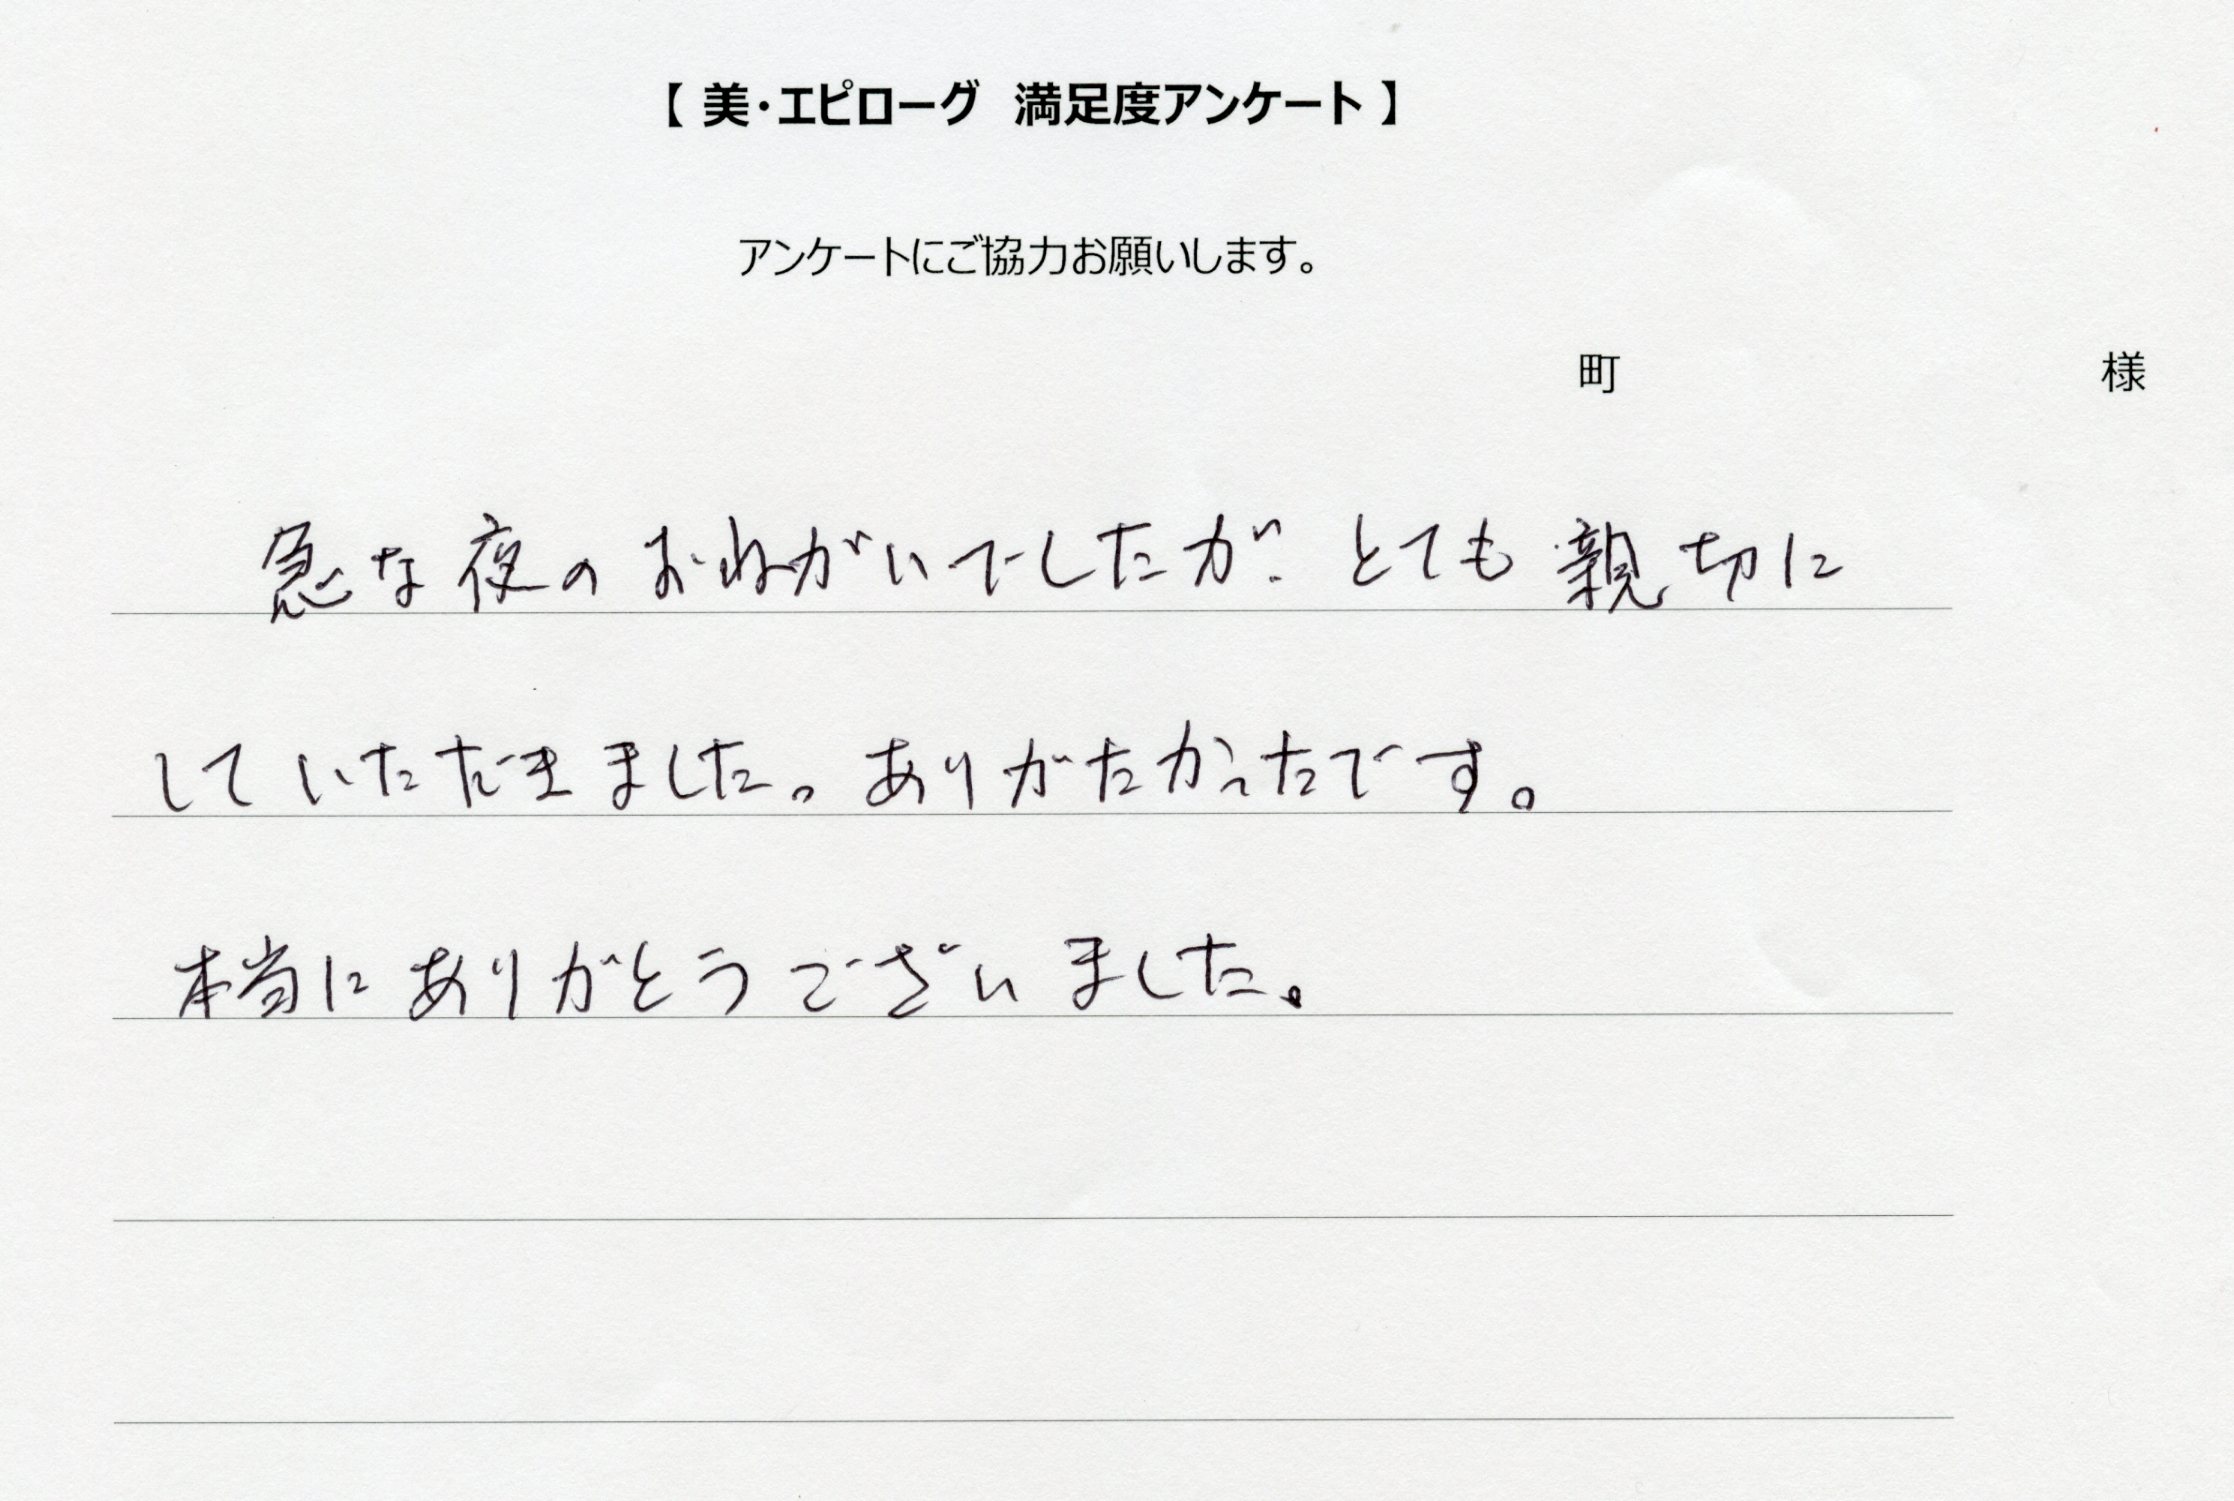 【 美・エピローグ　満足度アンケート 】
アンケートにご協力お願いします。
町　様
急な夜のおねがいでしたが、とても親切に
していただきました。ありがたかったです。
本当にありがとうございました。